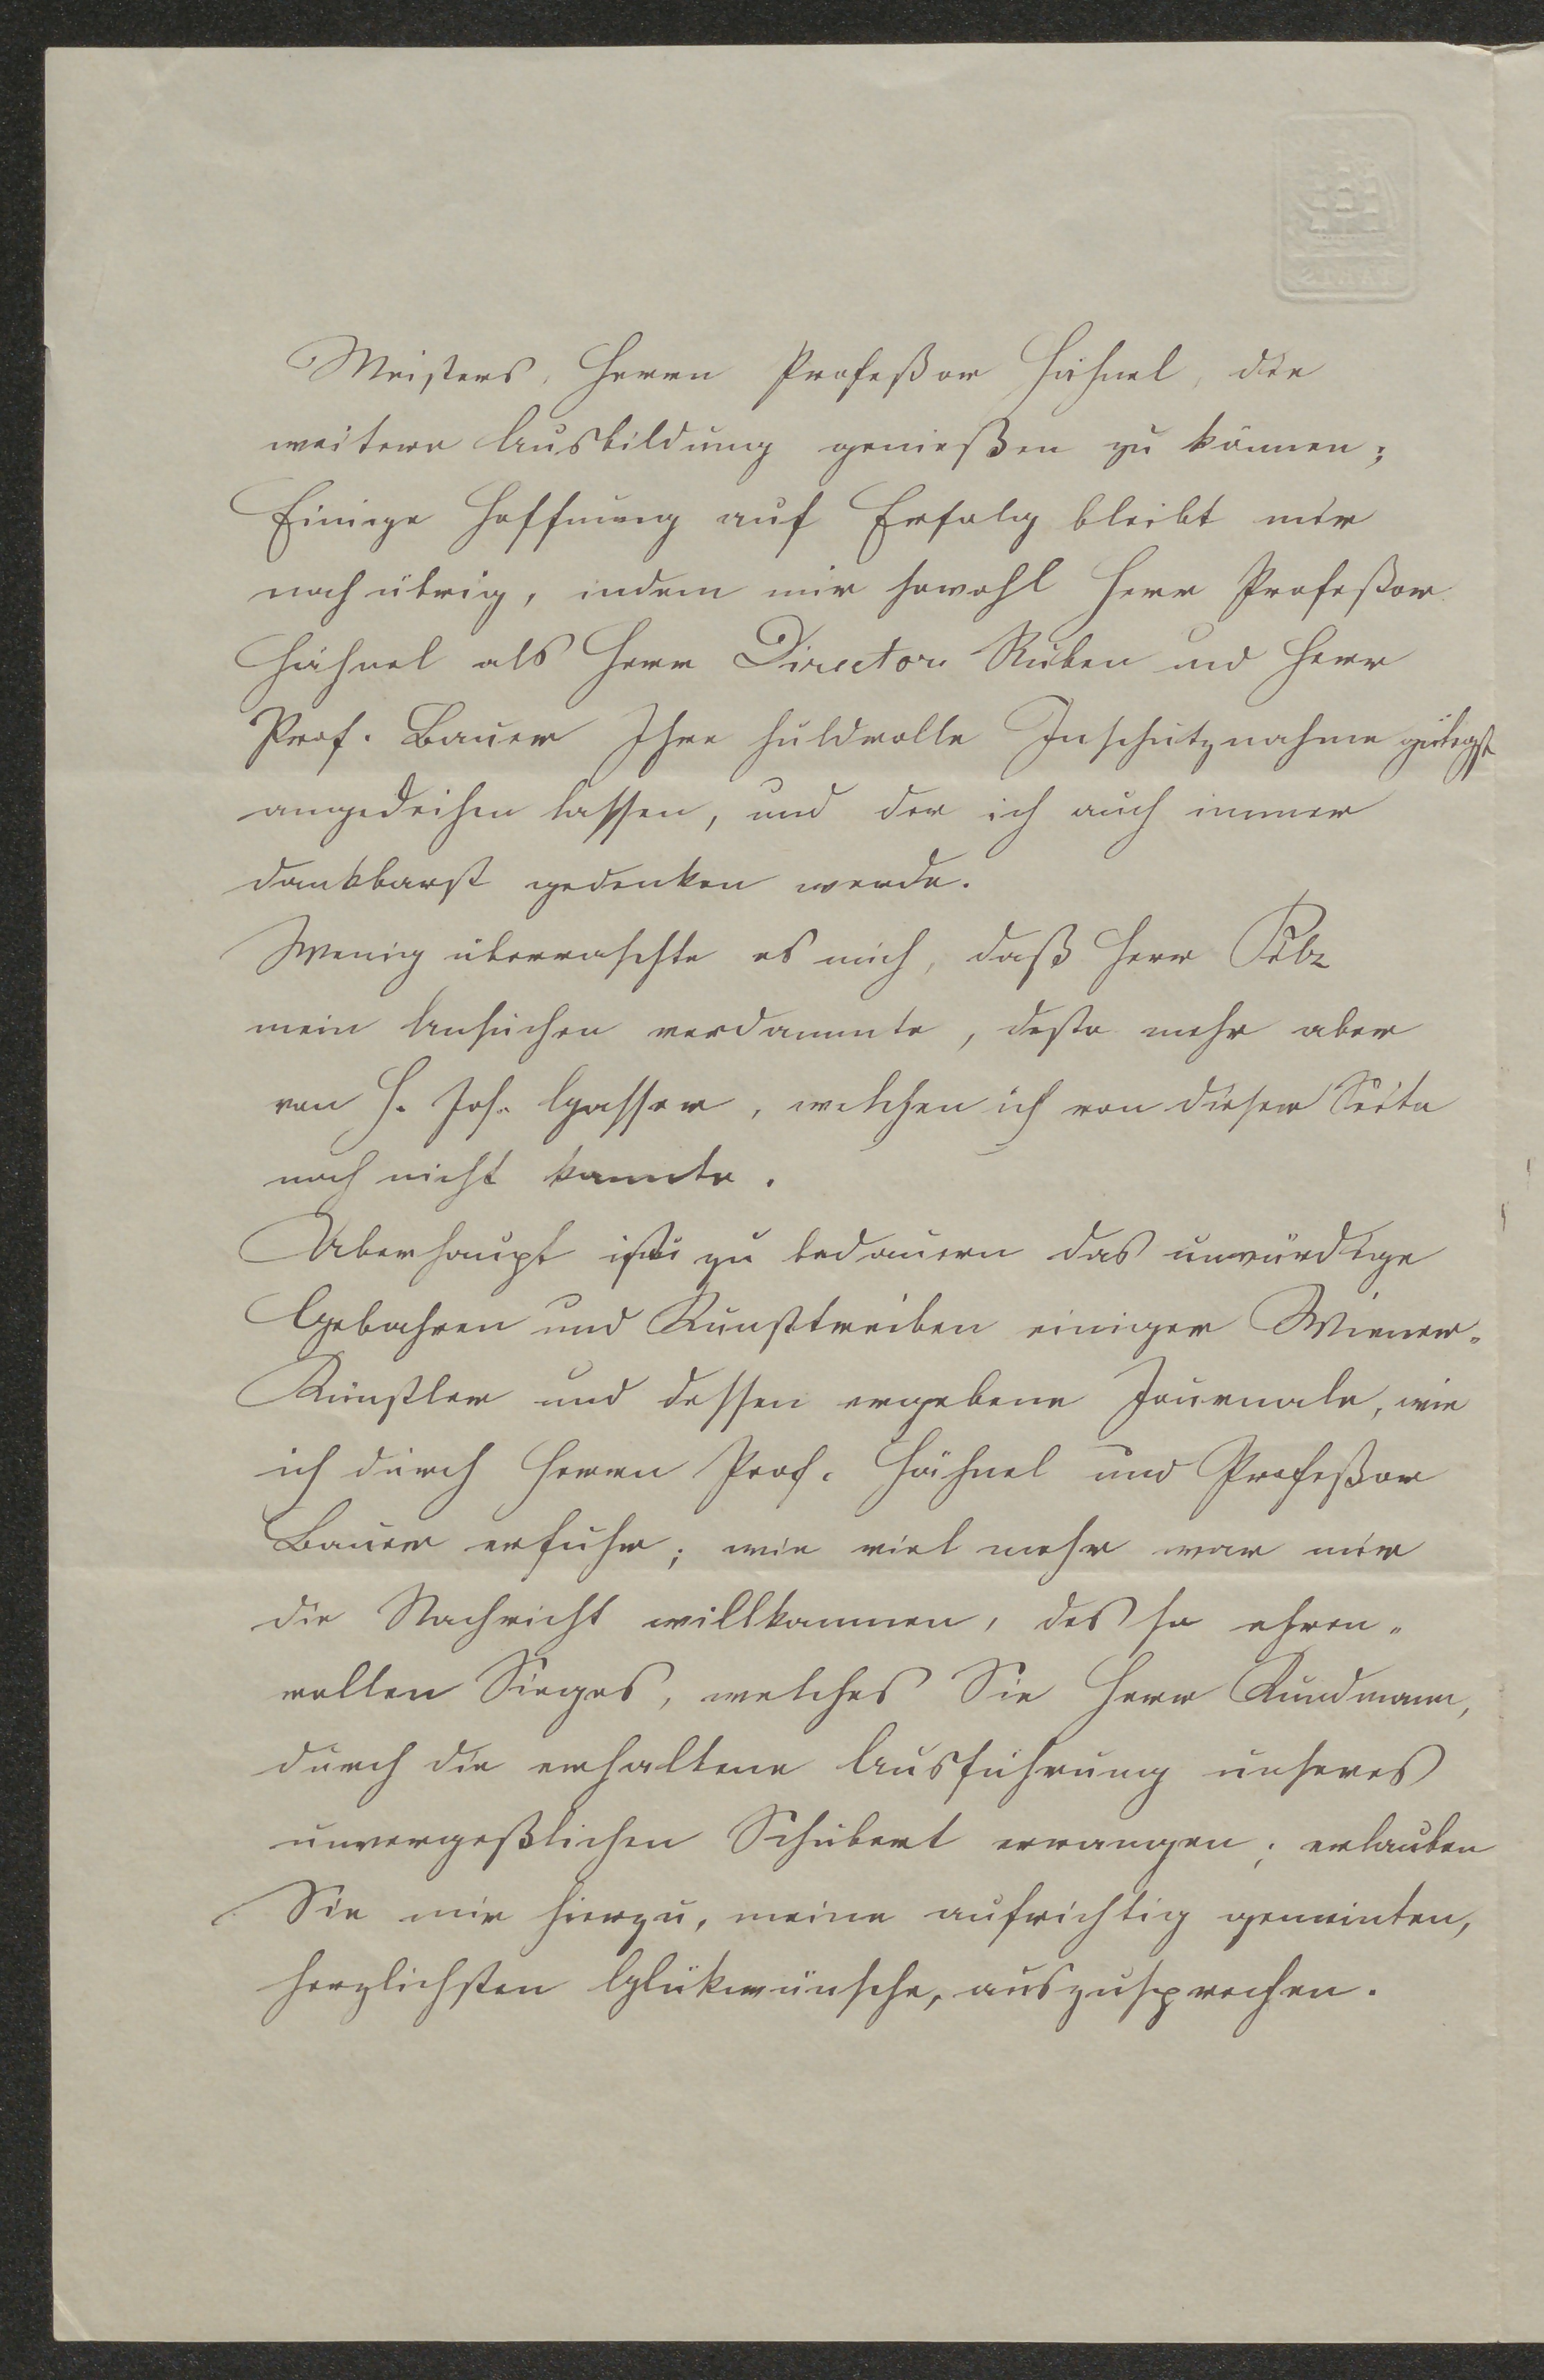 Meisters, Herrn Profeßor Hähnel, die
weitere Ausbildung genießen zu können;
Einige Hoffnung auf Erfolg bleibt mir
noch übrig, indem mir sowohl Herr Profeßor
Hähnel als Herr Director Ruben und Herr
Prof. Bauer Ihre huldvolle Inschutznahme gütigst
angedeihen lassen, und der ich auch immer
dankbarst gedenken werde.
Wenig überraschte es mich, daß Herr
mein Ansuchen verdammte, desto mehr aber
von H. Jos. Gasser, welchen ich von dieser Seite
noch nicht kannte.
Überhaupt ist zu bedauern das unwürdige
Gebahren und Kunsttreiben einiger Wiener-
Künstler und dessen ergebene Journale, wie
ich durch Herrn Prof. Hähnel und Profeßor
Bauer erfuhr; wie viel mehr war mir
die Nachricht willkommen, des so ehren-
vollen Sieges, welches Sie Herr Kundmann,
durch die erhaltene Ausführung unseres
unvergeßlichen Schubert errangen; erlauben
Sie mir hierzu, meine aufrichtig gemeinten,
herzlichsten Glükwünsche, auszusprechen.